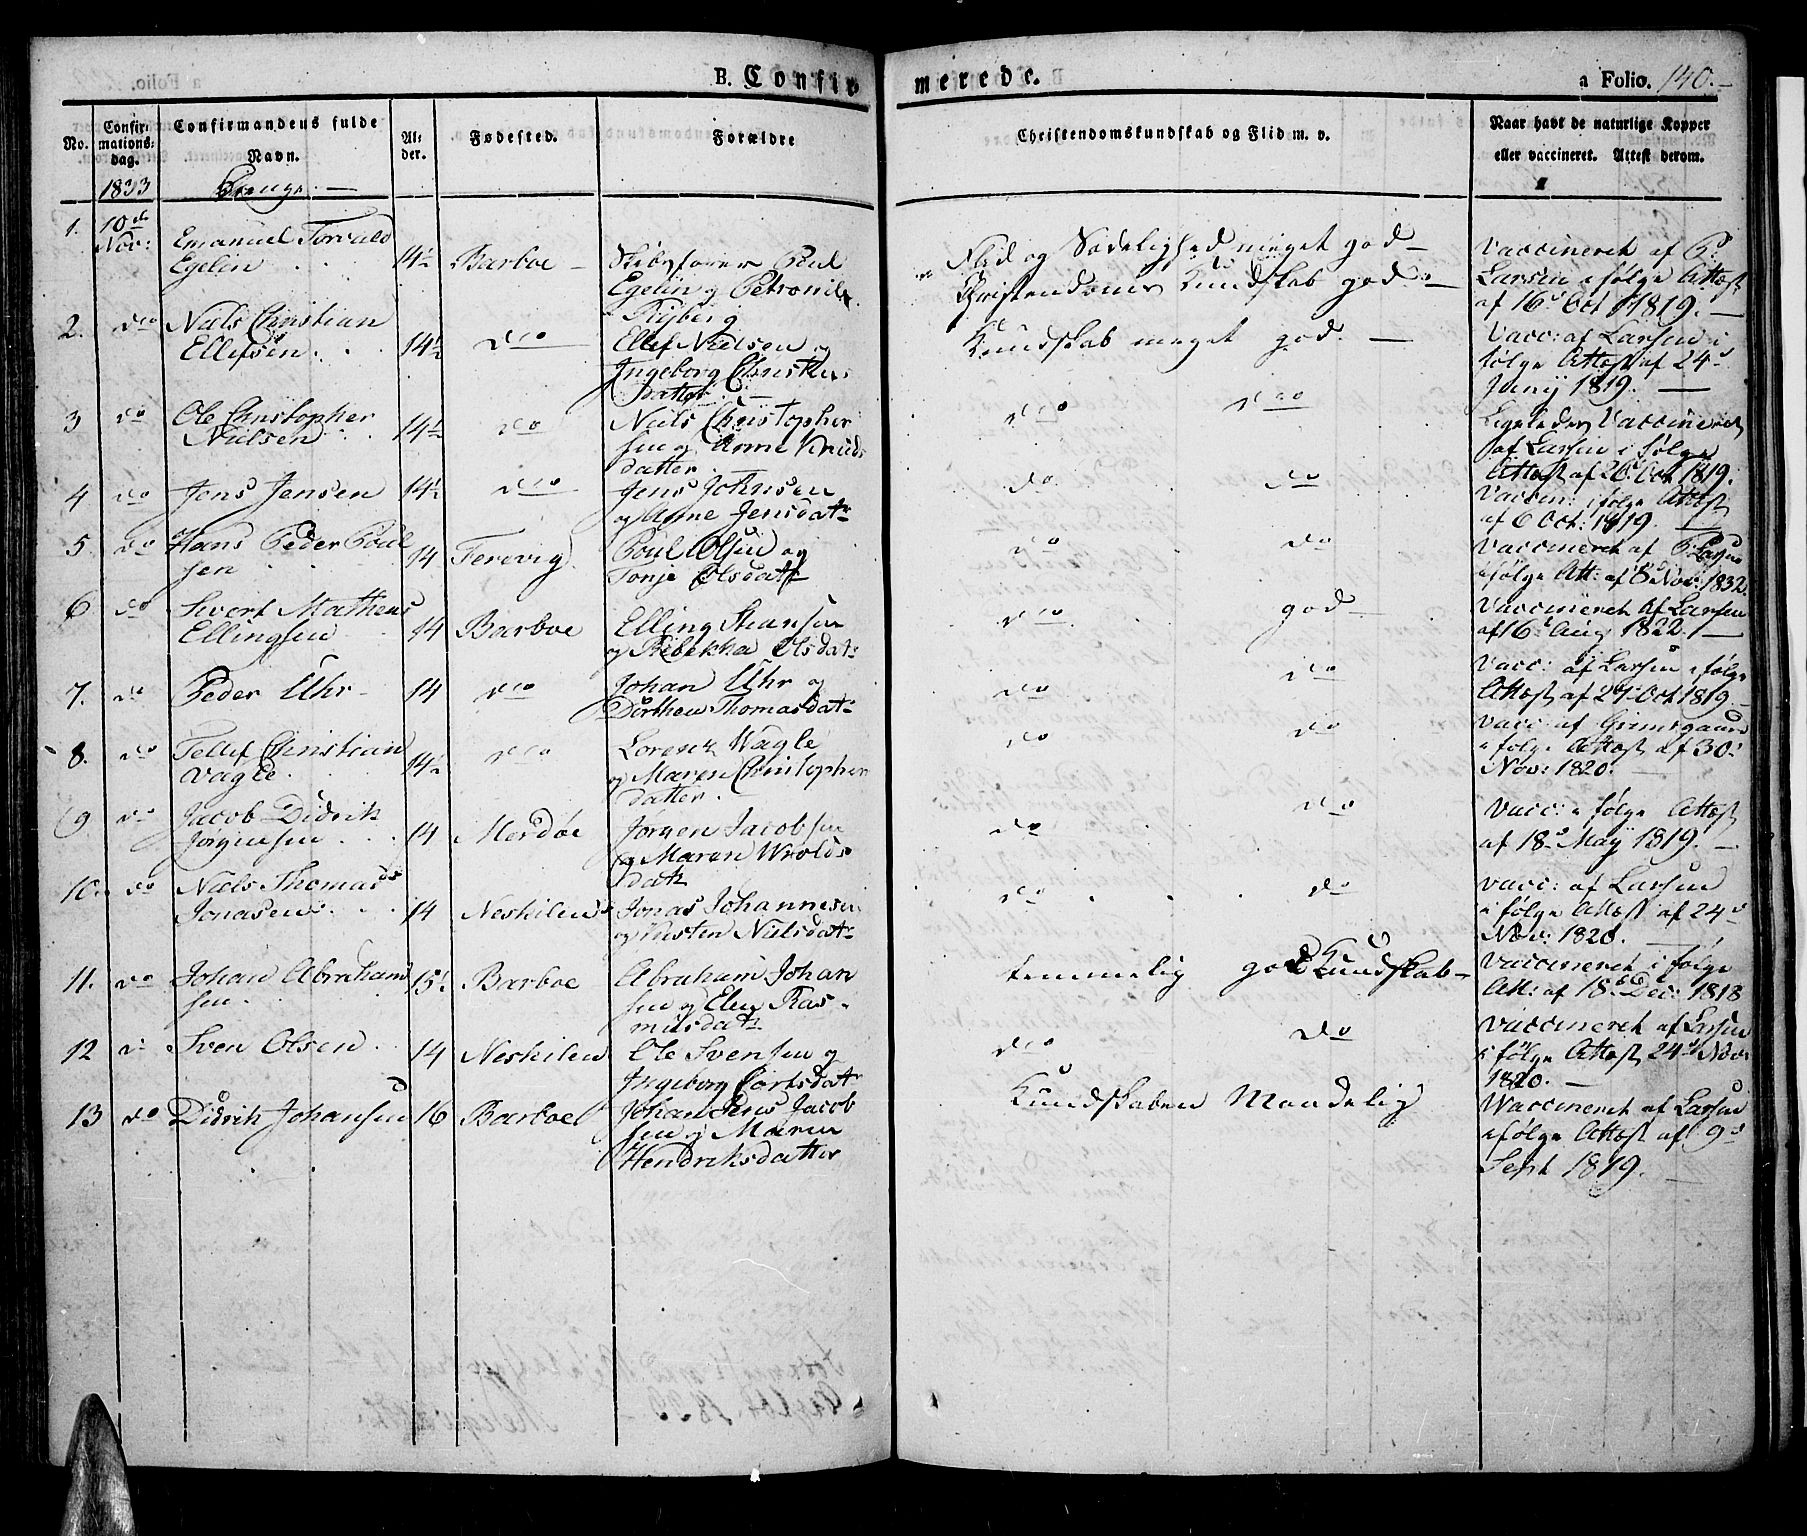 B. Confir
merede.
a Folio. 140.
No.
Confirmations-dag.
Confirmandens fulde Navn.
Alder.
Fødested.
Forældre
Christendomskundskab og Flid m. v.
Naar havt de naturlige Kopper
eller vaccineret. Attest derom.
1833
Drenge.
1. 10de Nov: Emanuel Torvald 14½ Barboe Skibsfører Poul Flid og Sædelighed meget god Vaccineret af P.
Egelin Egelin og Petronile Christendoms Kundskab god Larsen ifølge Attest
Ryberg af 16d Oct 1819.
2. do Niels Christian 14½ do Ellef Nielsen og Kundskab meget god. Vacc: af Larsen i
Ellefsen Ingeborg Christens følge Attest af 24d
datter Juny 1819.
3 do Ole Christopher 14½ do Niels Christopher do do Ligeledes Vaccineret
Nielsen sen og Anne Knuds af Larsen i følge
datter Attest af 26 Oct 1819.
4 do Jens Jensen 14½ do Jens Johnsen do do Vaccin: ifølge Attest
og Anne Jensdatr af 6 Oct: 1819.
5. do Hans Peder Poul 14 Terevig Poul Olsen og do do Vaccineret af P Larsen
sen Tonje Olsdatr ifølge Att: af 8 Nov: 1832.
6 do Sivert Mathens 14 Barboe Elling do god Vaccineret af Larsen
Ellingsen og Rebekka Olsdatr af 16d Aug 1822.
7. do Peder Uhr 14 do Johan Uhr og do do Vacc: af Larsen ifølge
Dorthea Thomasdatr Attest af 27 Oct 1819
8. do Tellef Christian 14½ do Lorenz Wagle do do Vacc: af Grimsgaard
Vagle og Maren Christopher ifølge Attest af 30.
datter. Nov: 1820.
9 do Jacob Didrik 14 Merdøe Jørgen Jacobsen do do Vacc: i følge Attest
Jørgensen og Maren Wrolds af 18d May 1819.
datr
10. do Niels Thomas 14 Neskilen Jonas Johannesen do do Vacc: af Larsen
Jonasen og Kirsten Nielsdatr i følge Attest af 24d
Nov: 1820.
11. do Johan Abraham 15½ Barboe Abraham Johan temmelig god Kundskab Vaccineret i følge
sen sen og Elen Ras Att: af 18 Dec: 1818
musdatr
12 do Sven Olsen 14 Neskilen Ole Svensen og do do Vaccineret af Larsen
Ingeborg Carlsdatr i følge Attest 24d Nov:
1820.
13 do Didrik Johansen 16 Barboe Johan Jens Jacob Kundskaben Maadelig Waccineret af Larsen
sen og Maren ifølge Attest af 9d
Hendriksdatter Sept 1819.